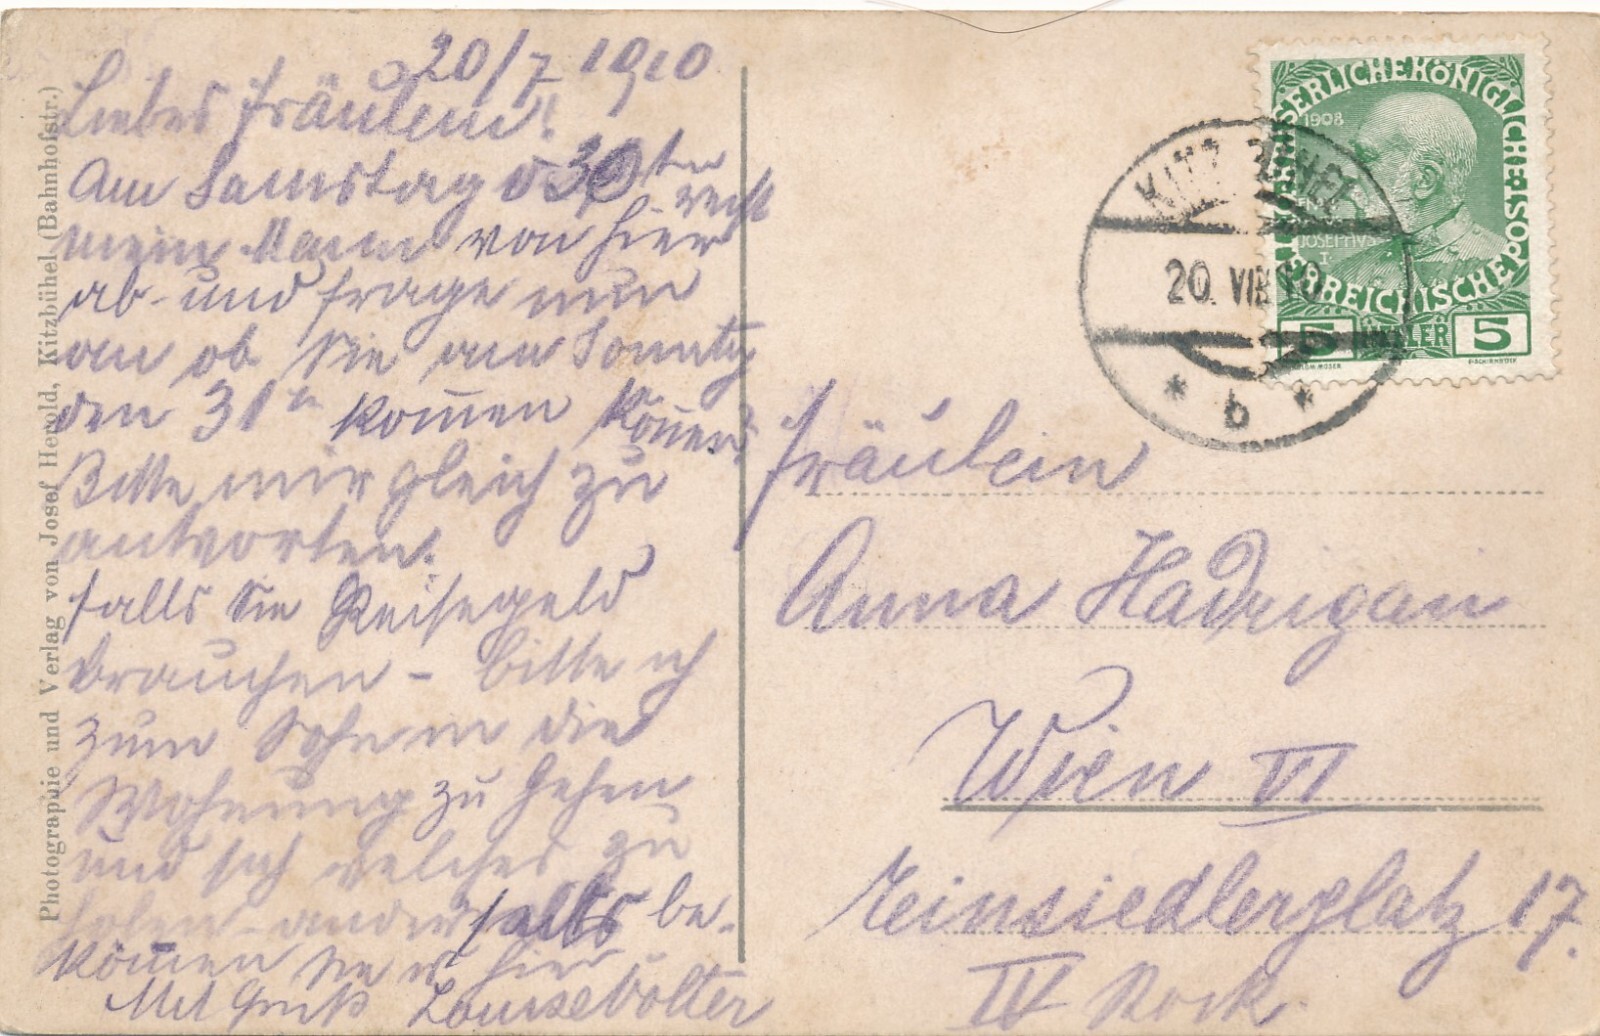 20/7 1910
Liebes Fräulein!
Am Samstag d 30ten reist
mein Mann von hier
ab und frage nun
an ob Sie am Sonntg
den 31tn kom̄en kön̄en?
Bitte mir gleich zu
antworten.
falls Sie Reisegeld
brauchen - bitte ich
zum Sohn in die
Wohnung zu gehen
und sich welches zu
holen - andernfalls be-
kom̄en Sie es hier
Mit Gruß Louise Wolter
Photographie und Verlag von Josef Herold, Kitzbühel (Bahnhofstr.)
KAISERLICHE KÖNIGLICHE ÖSTERREICHISCHE POST
1908
JOSEPHVS
I
5 HELLER 5
KITZBÜHEL
20. VII. 10
* b *
Fräulein
Anna Hadrigan
Wien VI
Einsiedlerplatz 17.
IV Stock.